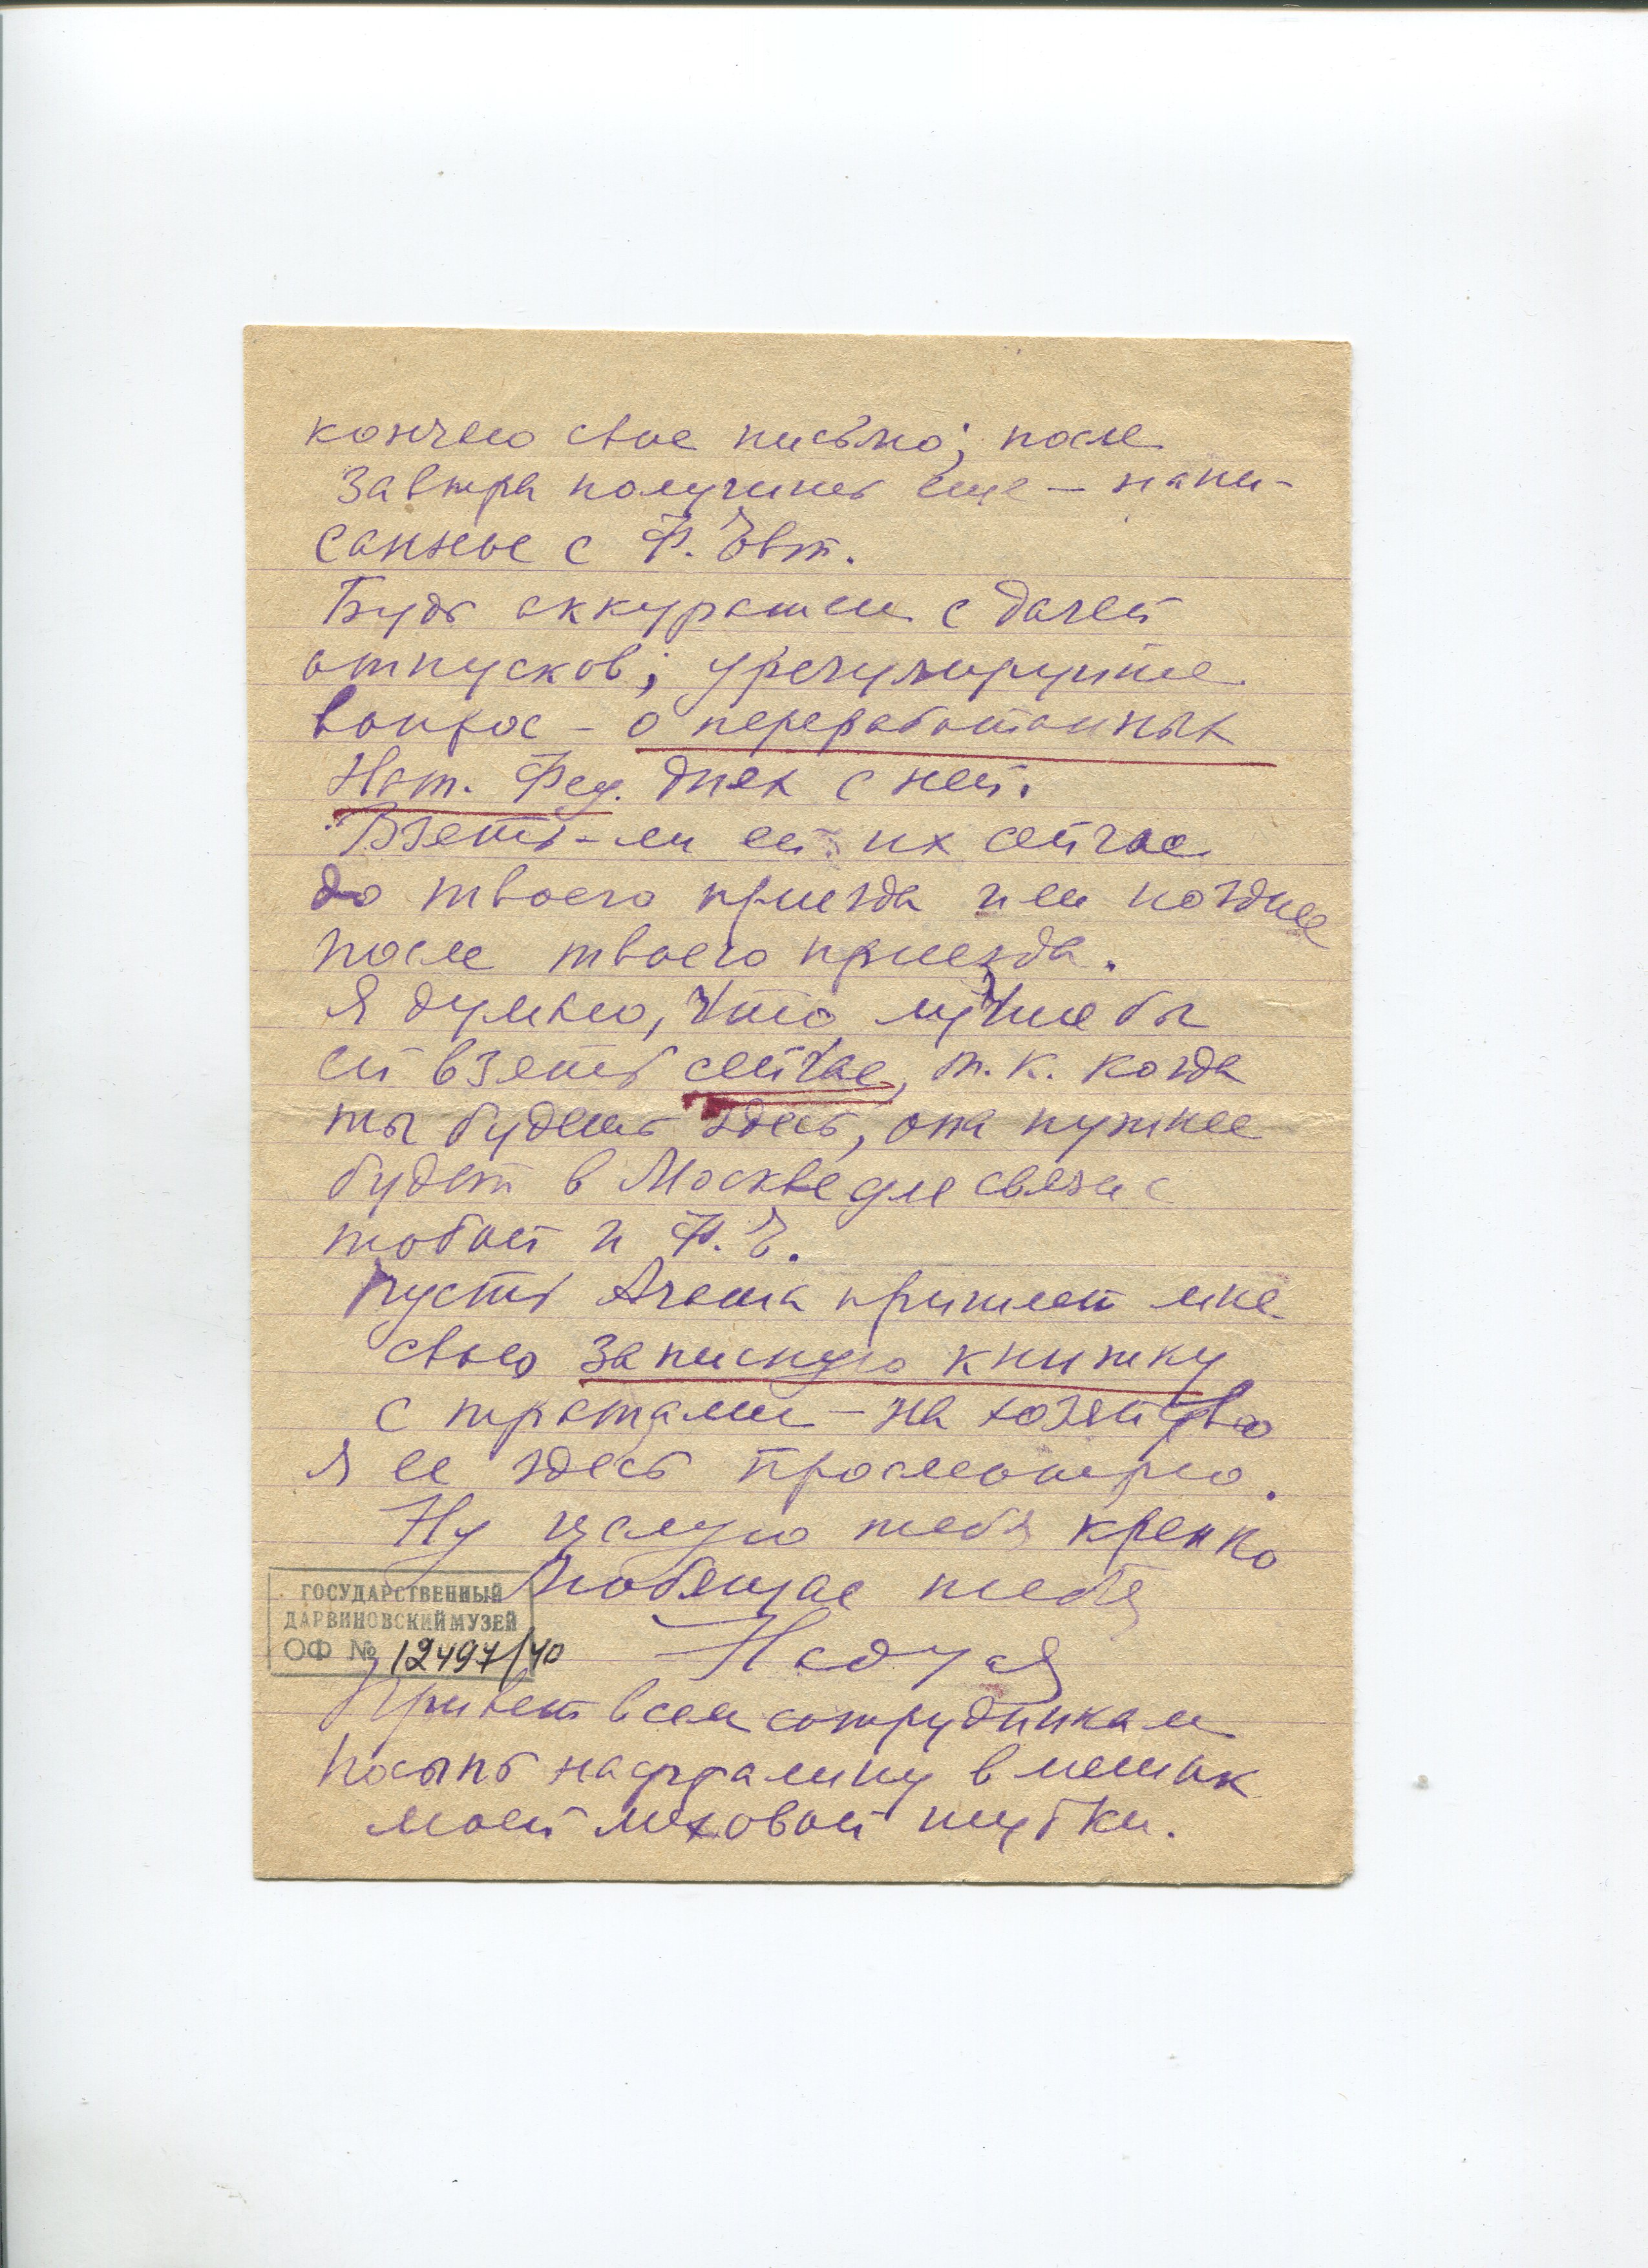 кончаю свое письмо; после
завтра получишь еще – напи-
санное с Ф. Евт.
Будь аккуратен с дачей
отпусков; урегулируйте
вопрос – о переработанных
Нат. Фед. днях с ней.
Взять-ли ей их сейчас
до твоего приезда или позднее
после твоего приезда.
Я думаю, что лучше бы
ей взять сейчас, т.к. когда
ты будешь здесь, она нужнее
будет в Москве для связи с
тобой и Ф.Е.
Пусть Агаша пришлет мне
свою записную книжку
с тратами – на хозяйство
я ее здесь просмотрю.
Ну целую тебя крепко
Любящая тебя
ГОСУДАРСТВЕННЫЙ
ДАРВИНОВСКИЙ МУЗЕЙ
ОФ № 12497/40
Надуся
Привет всем сотрудникам
Посыпь нафталину в мешок
моей меховой шубки.